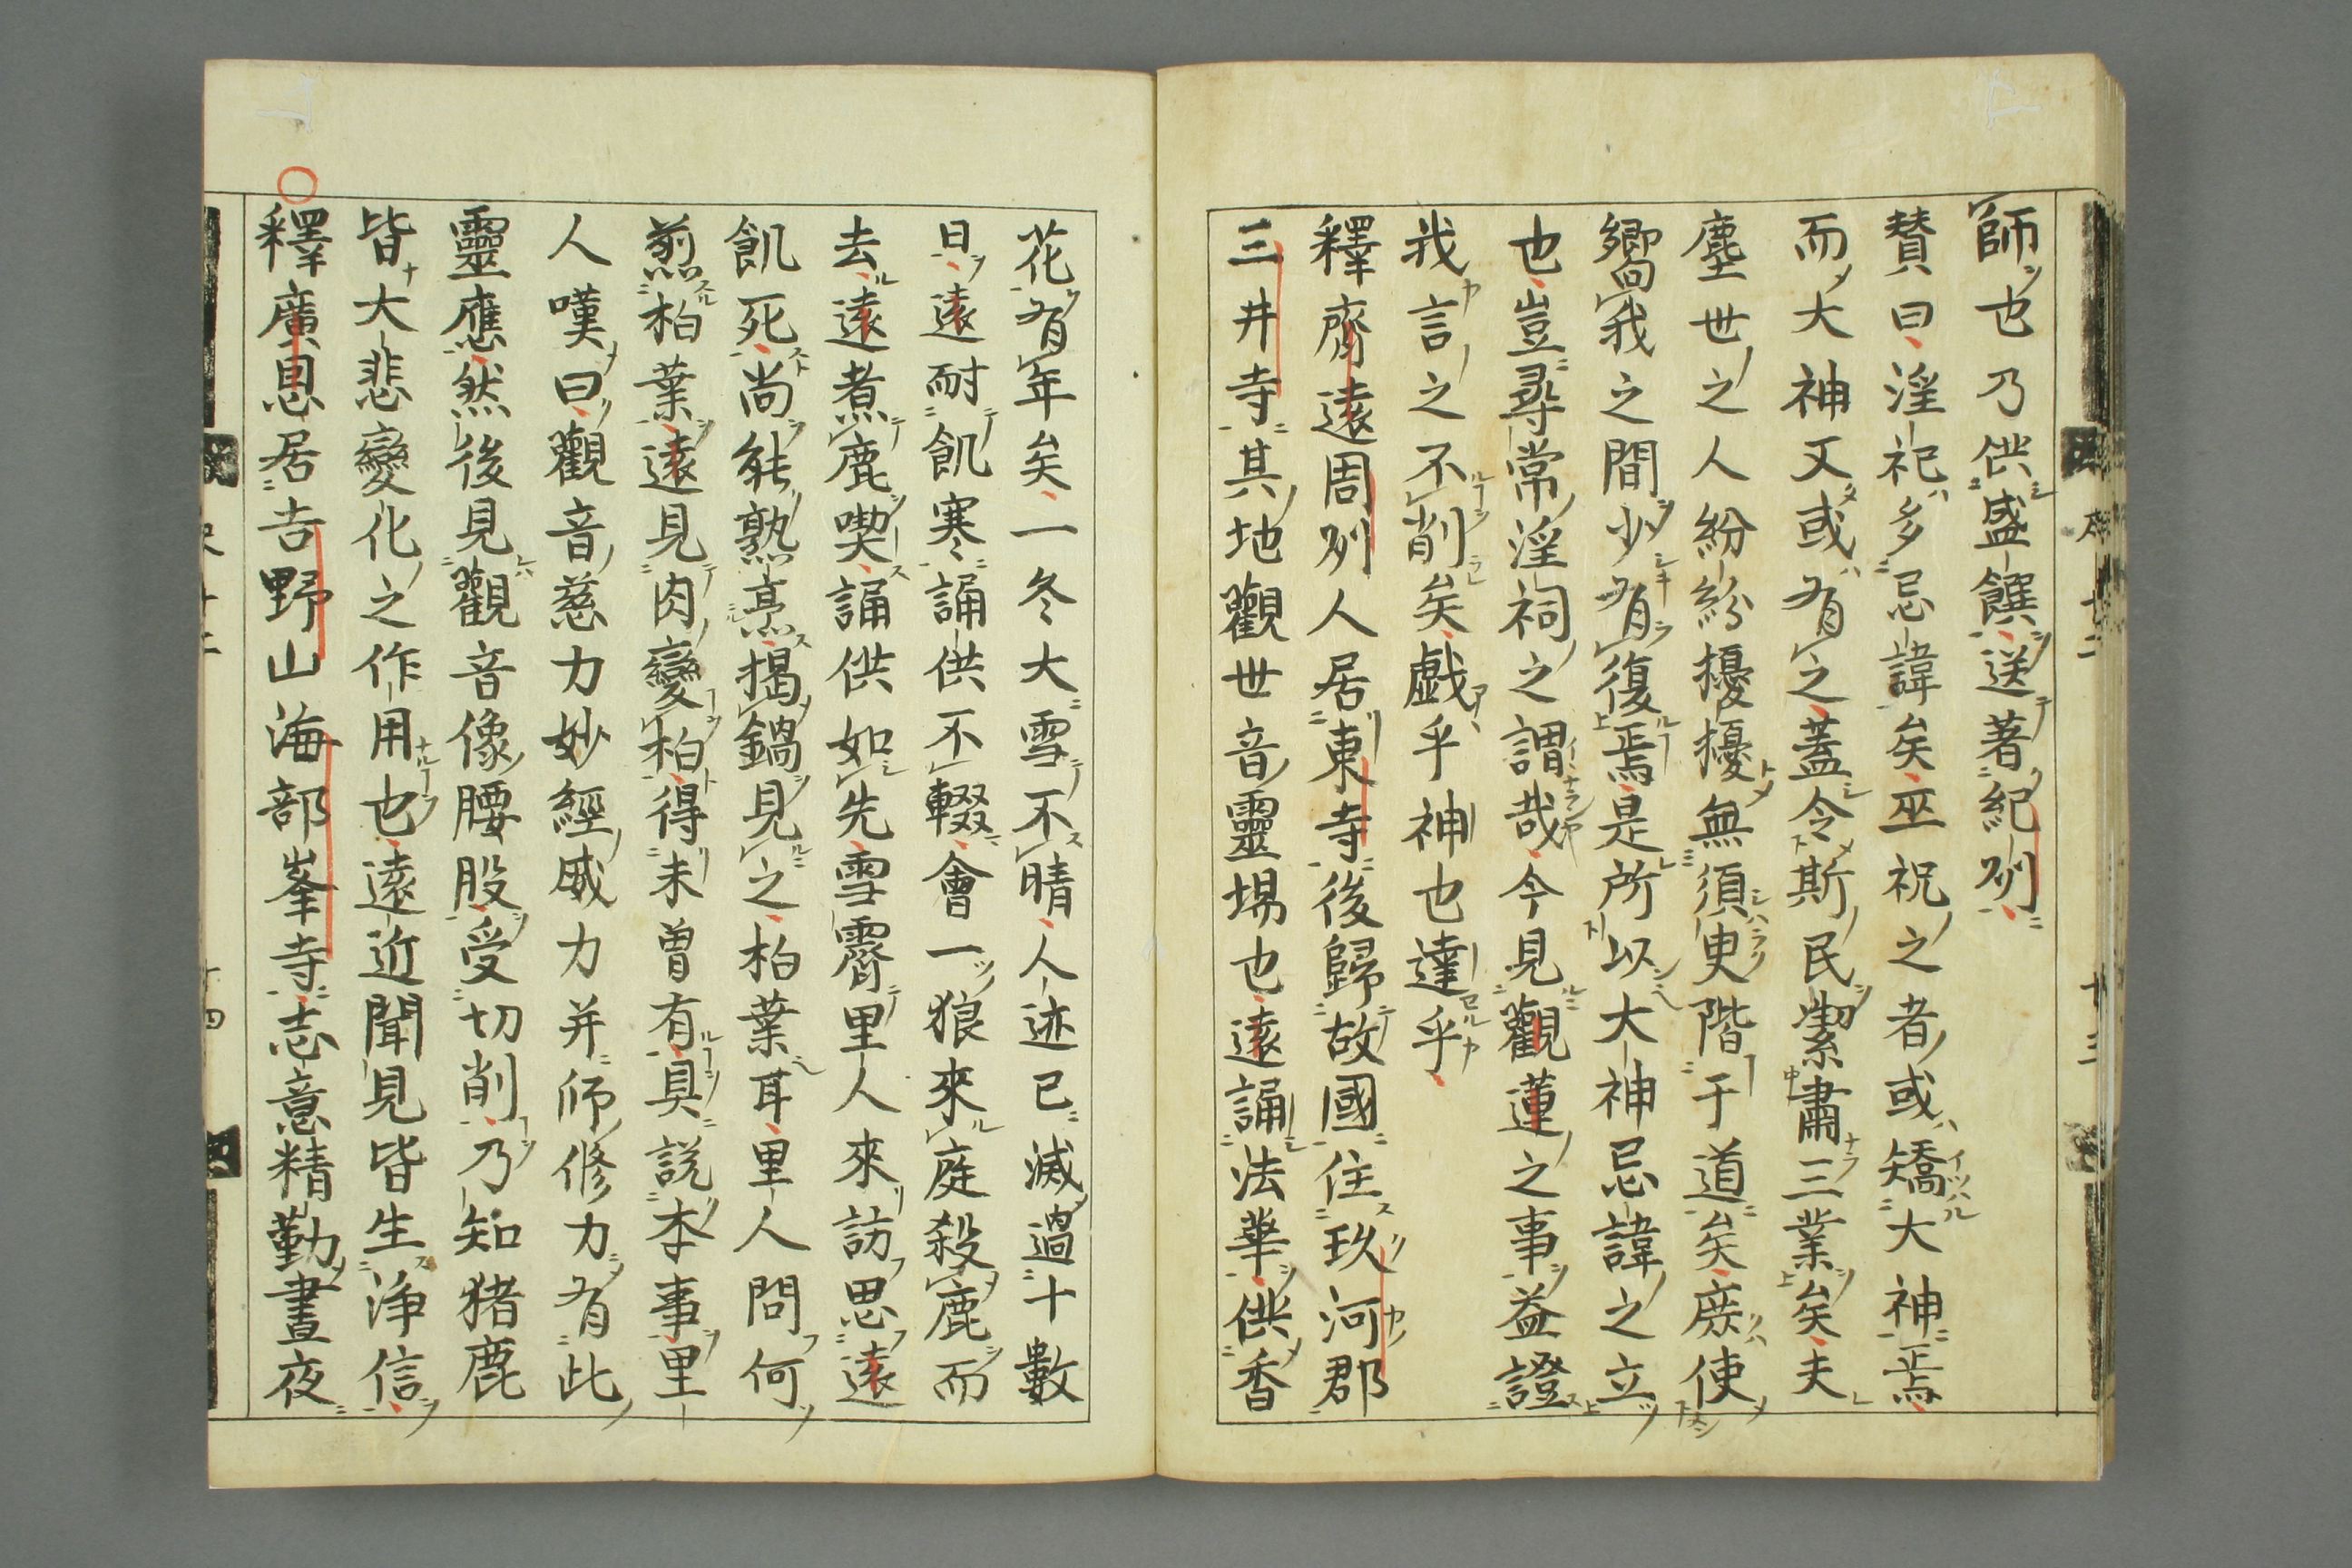 師也乃供盛饌送著紀刕
賛曰淫祀多忌諱矣巫祝之者或矯大神焉
而大神又或有之蓋令斯民潔肅三業矣夫
塵世之人紛紛擾擾無須臾階于道矣庶使
嚮我之間少有復焉是所以大神忌諱之立
也豈尋常淫祠之謂哉今見觀蓮之事益證
我言之不削矣戯乎神也達乎
釋齊遠周刕人居東寺後歸故國住玖河郡
三井寺其地觀世音靈場也遠誦法華供香
花有年矣一冬大雪不晴人迹已滅過十數
日遠耐飢寒誦供不輟會一狼來庭殺鹿而
去遠煮鹿喫誦供如先雪霽里人來訪思遠
飢死尚能熟烹揭鍋見之柏葉耳里人問何
煎柏葉遠見肉變柏得未曾有具說本事里
人嘆曰觀音慈力妙經威力并師修力有此
靈應然後見觀音像腰股受切削乃知猪鹿
皆大悲變化之作用也遠近聞見皆生淨信
釋廣恩居吉野山海部峯寺志意精勤晝夜